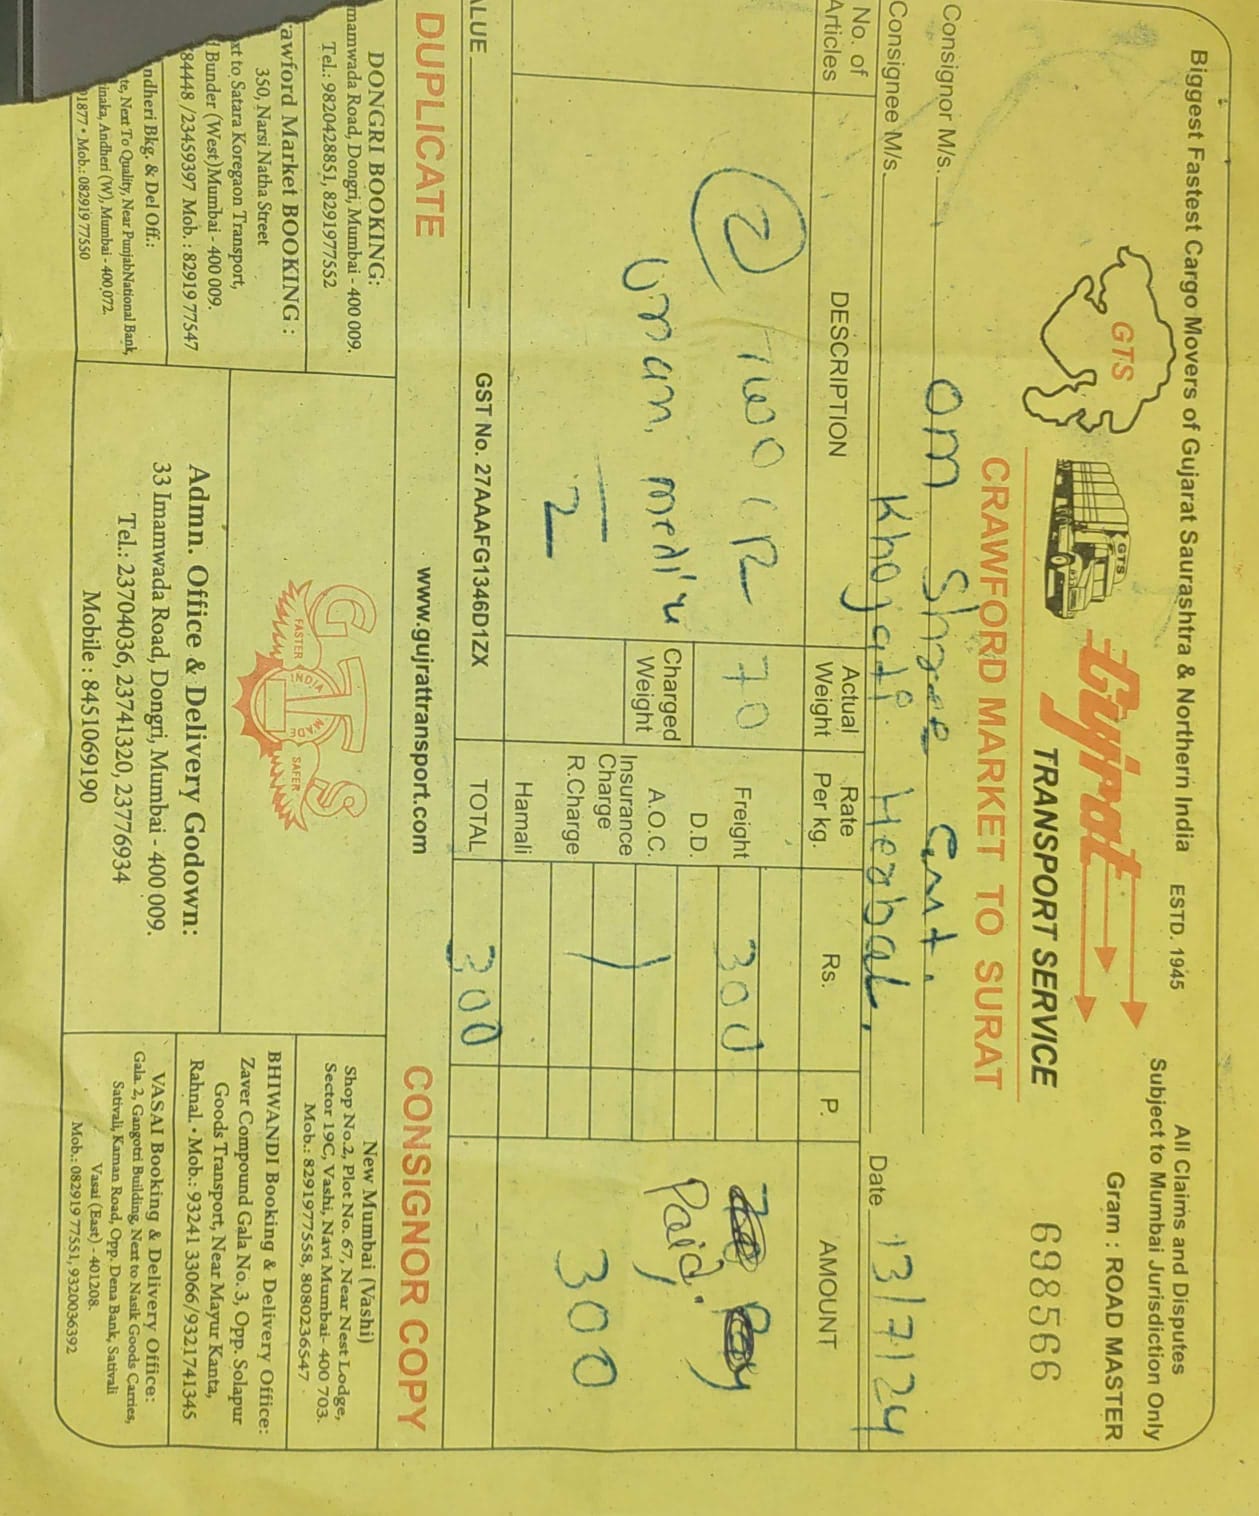 Biggest Fastest Cargo Movers of Gujarat Saurashtra & Northern India ESTD. 1945
All Claims and Disputes
Subject to Mumbai Jurisdiction Only
GTS
GTS
Gujrat
TRANSPORT SERVICE
Gram : ROAD MASTER
698566
CRAWFORD MARKET TO SURAT
Consignor M/s. Om Shree Ent.
Consignee M/s. Khojati Herbal,
Date 13/7/24
No. of Articles
DESCRIPTION
Actual Weight
Rate Per kg.
Rs.
P.
AMOUNT
2 Two
70
Freight
300
D.D.
Charged Weight
A.O.C.
Paid.
Insurance Charge
R.Charge
300
2
Hamali
TOTAL
300
ALUE
GST No. 27AAAFG1346D1ZX
DUPLICATE
www.gujrattransport.com
CONSIGNOR COPY
DONGRI BOOKING:
mamwada Road, Dongri, Mumbai - 400 009.
Tel.: 9820428851, 8291977552
awford Market BOOKING :
350, Narsi Natha Street
xt to Satara Koregaon Transport,
d Bunder (West)Mumbai - 400 009.
84448 /23459397 Mob. : 82919 77547
ndheri Bkg. & Del Off.:
te, Next To Quality, Near PunjabNational Bank,
inaka, Andheri (W), Mumbai - 400,072.
01877 • Mob.: 082919 77550
GTS
FASTER
INDIA
MADE
SAFER
Admn. Office & Delivery Godown:
33 Imamwada Road, Dongri, Mumbai - 400 009.
Tel.: 23704036, 23741320, 23776934
Mobile : 8451069190
New Mumbai (Vashi)
Shop No.2, Plot No. 67, Near Nest Lodge,
Sector 19C, Vashi, Navi Mumbai- 400 703.
Mob.: 8291977558, 8080236547
BHIWANDI Booking & Delivery Office:
Zaver Compound Gala No. 3, Opp. Solapur
Goods Transport, Near Mayur Kanta,
Rahnal. • Mob.: 93241 33066/9321741345
VASAI Booking & Delivery Office:
Gala. 2, Gangotri Building, Next to Nasik Goods Carries,
Sativali, Kaman Road, Opp. Dena Bank, Sativali
Vasai (East) - 401208.
Mob.: 082919 77551, 9320036392